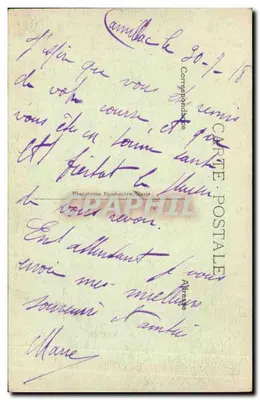 Camillac le 30-7-18
J'espère que vous êtes remis
de votre course, et que
vous êtes en bonne santé
Et bientôt le plaisir
de vous revoir.
En attendant je vous
envoie mes meilleurs
souvenirs et amitiés
Marie
CARTE POSTALE
Correspondance
Adresse
CRAPHIT